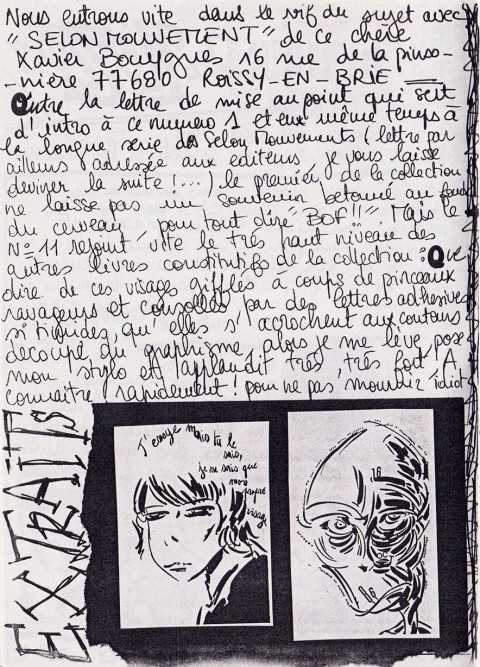 Nous entrons vite dans le vif du sujet avec
"SELON MOUVEMENT" de ce cher
Xavier Bouygues 16 rue de la pinso-
-nière 77680 ROISSY-EN-BRIE
Outre la lettre de mise au point qui sert
d'intro à ce numero 1 et en même temps à
la longue série des Selon Mouvements (lettre par
ailleurs adressée aux editeurs je vous laisse
deviner la suite!...) le premier de la collection
ne laisse pas un souvenir betonné au fond
du cerveau pour tout dire "BOF!!". Mais le
N=11 rejoint vite le très haut niveau des
autres livres constitutifs de la collection: Que
dire de ces visages gifflés à coups de pinceaux
ravageurs et consolés par des lettres adhesives
si timides, qu'elles s'acrochent aux contours
découpé du graphisme, alors je me lève pose
mon stylo et j'applaudit très, très fort. A
connaître rapidement! pour ne pas mourir idiot
EXTRAITS
J'essaye mais tu le
sais,
je ne suis que
mon
propre
visage
16
16